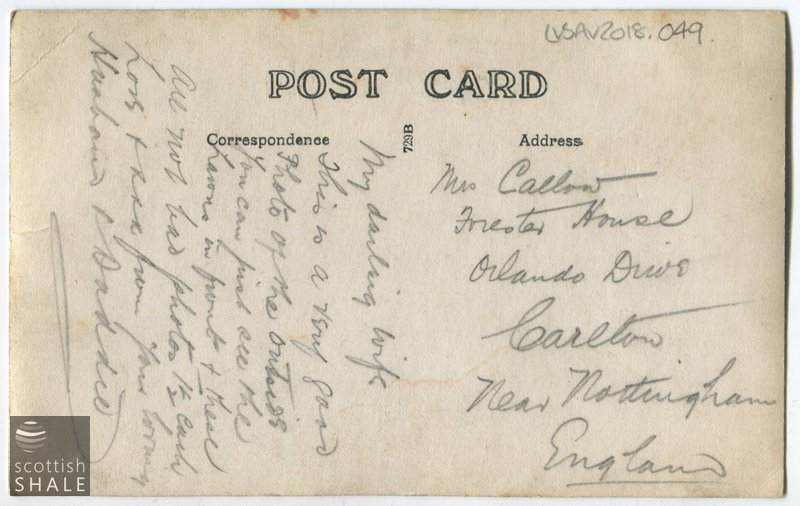 LVSAV2018.049.
POST CARD
Correspondence
729B
Address
My darling wife
This is a very good
Photo of the outside
You can just see the
Lawns in front & these
are not bad photos 1½ each
Love & xxx from your loving
Husband & Daddie
Mrs Callow
Forester House
Orlando Drive
Carlton
Near Nottingham
England
scottish
SHALE